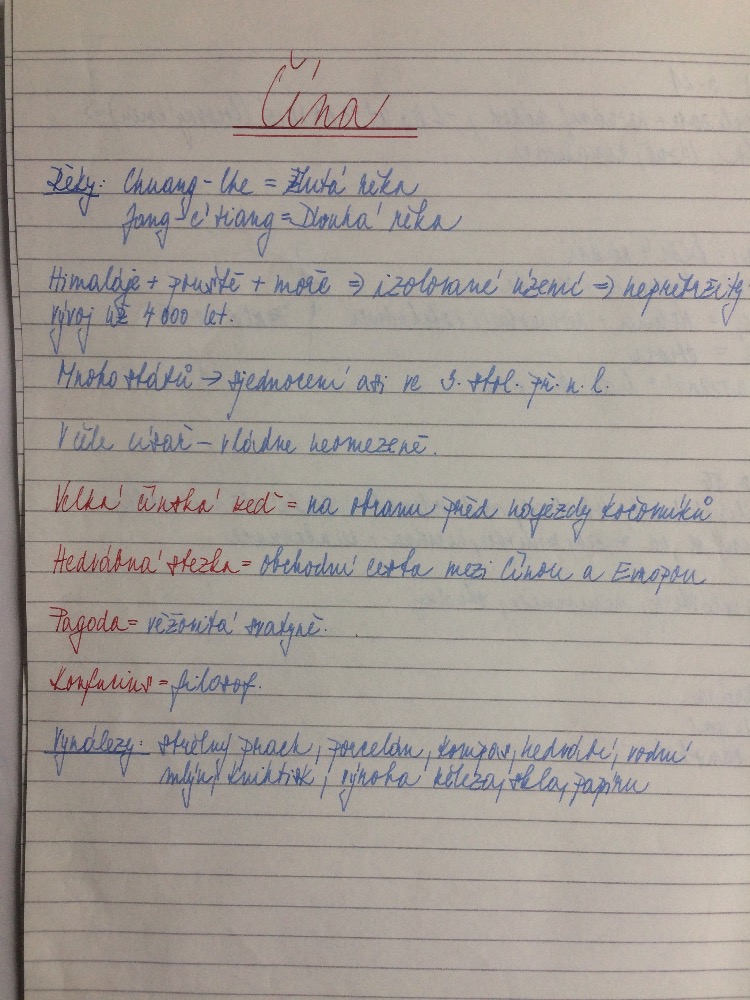 Čína
Řeky: Chuang-che = Žlutá řeka
Jang-c'tiang = Dlouhá řeka
Himaláje + pouště + moře ⇒ izolované území ⇒ nepřetržitý
vývoj už 4000 let.
Mnoho států → sjednocení asi ve 3. stol. př. n. l.
V čele císař – vládne neomezeně.
Velká čínská zeď = na obranu před nájezdy kočovníků
Hedvábná stezka = obchodní cesta mezi Čínou a Evropou
Pagoda = věžovitá svatyně.
Konfucius = filosof.
Vynálezy: střelný prach, porcelán, kompas, hedvábí, vodní
mlýn, knihtisk, výroba železa, skla, papíru